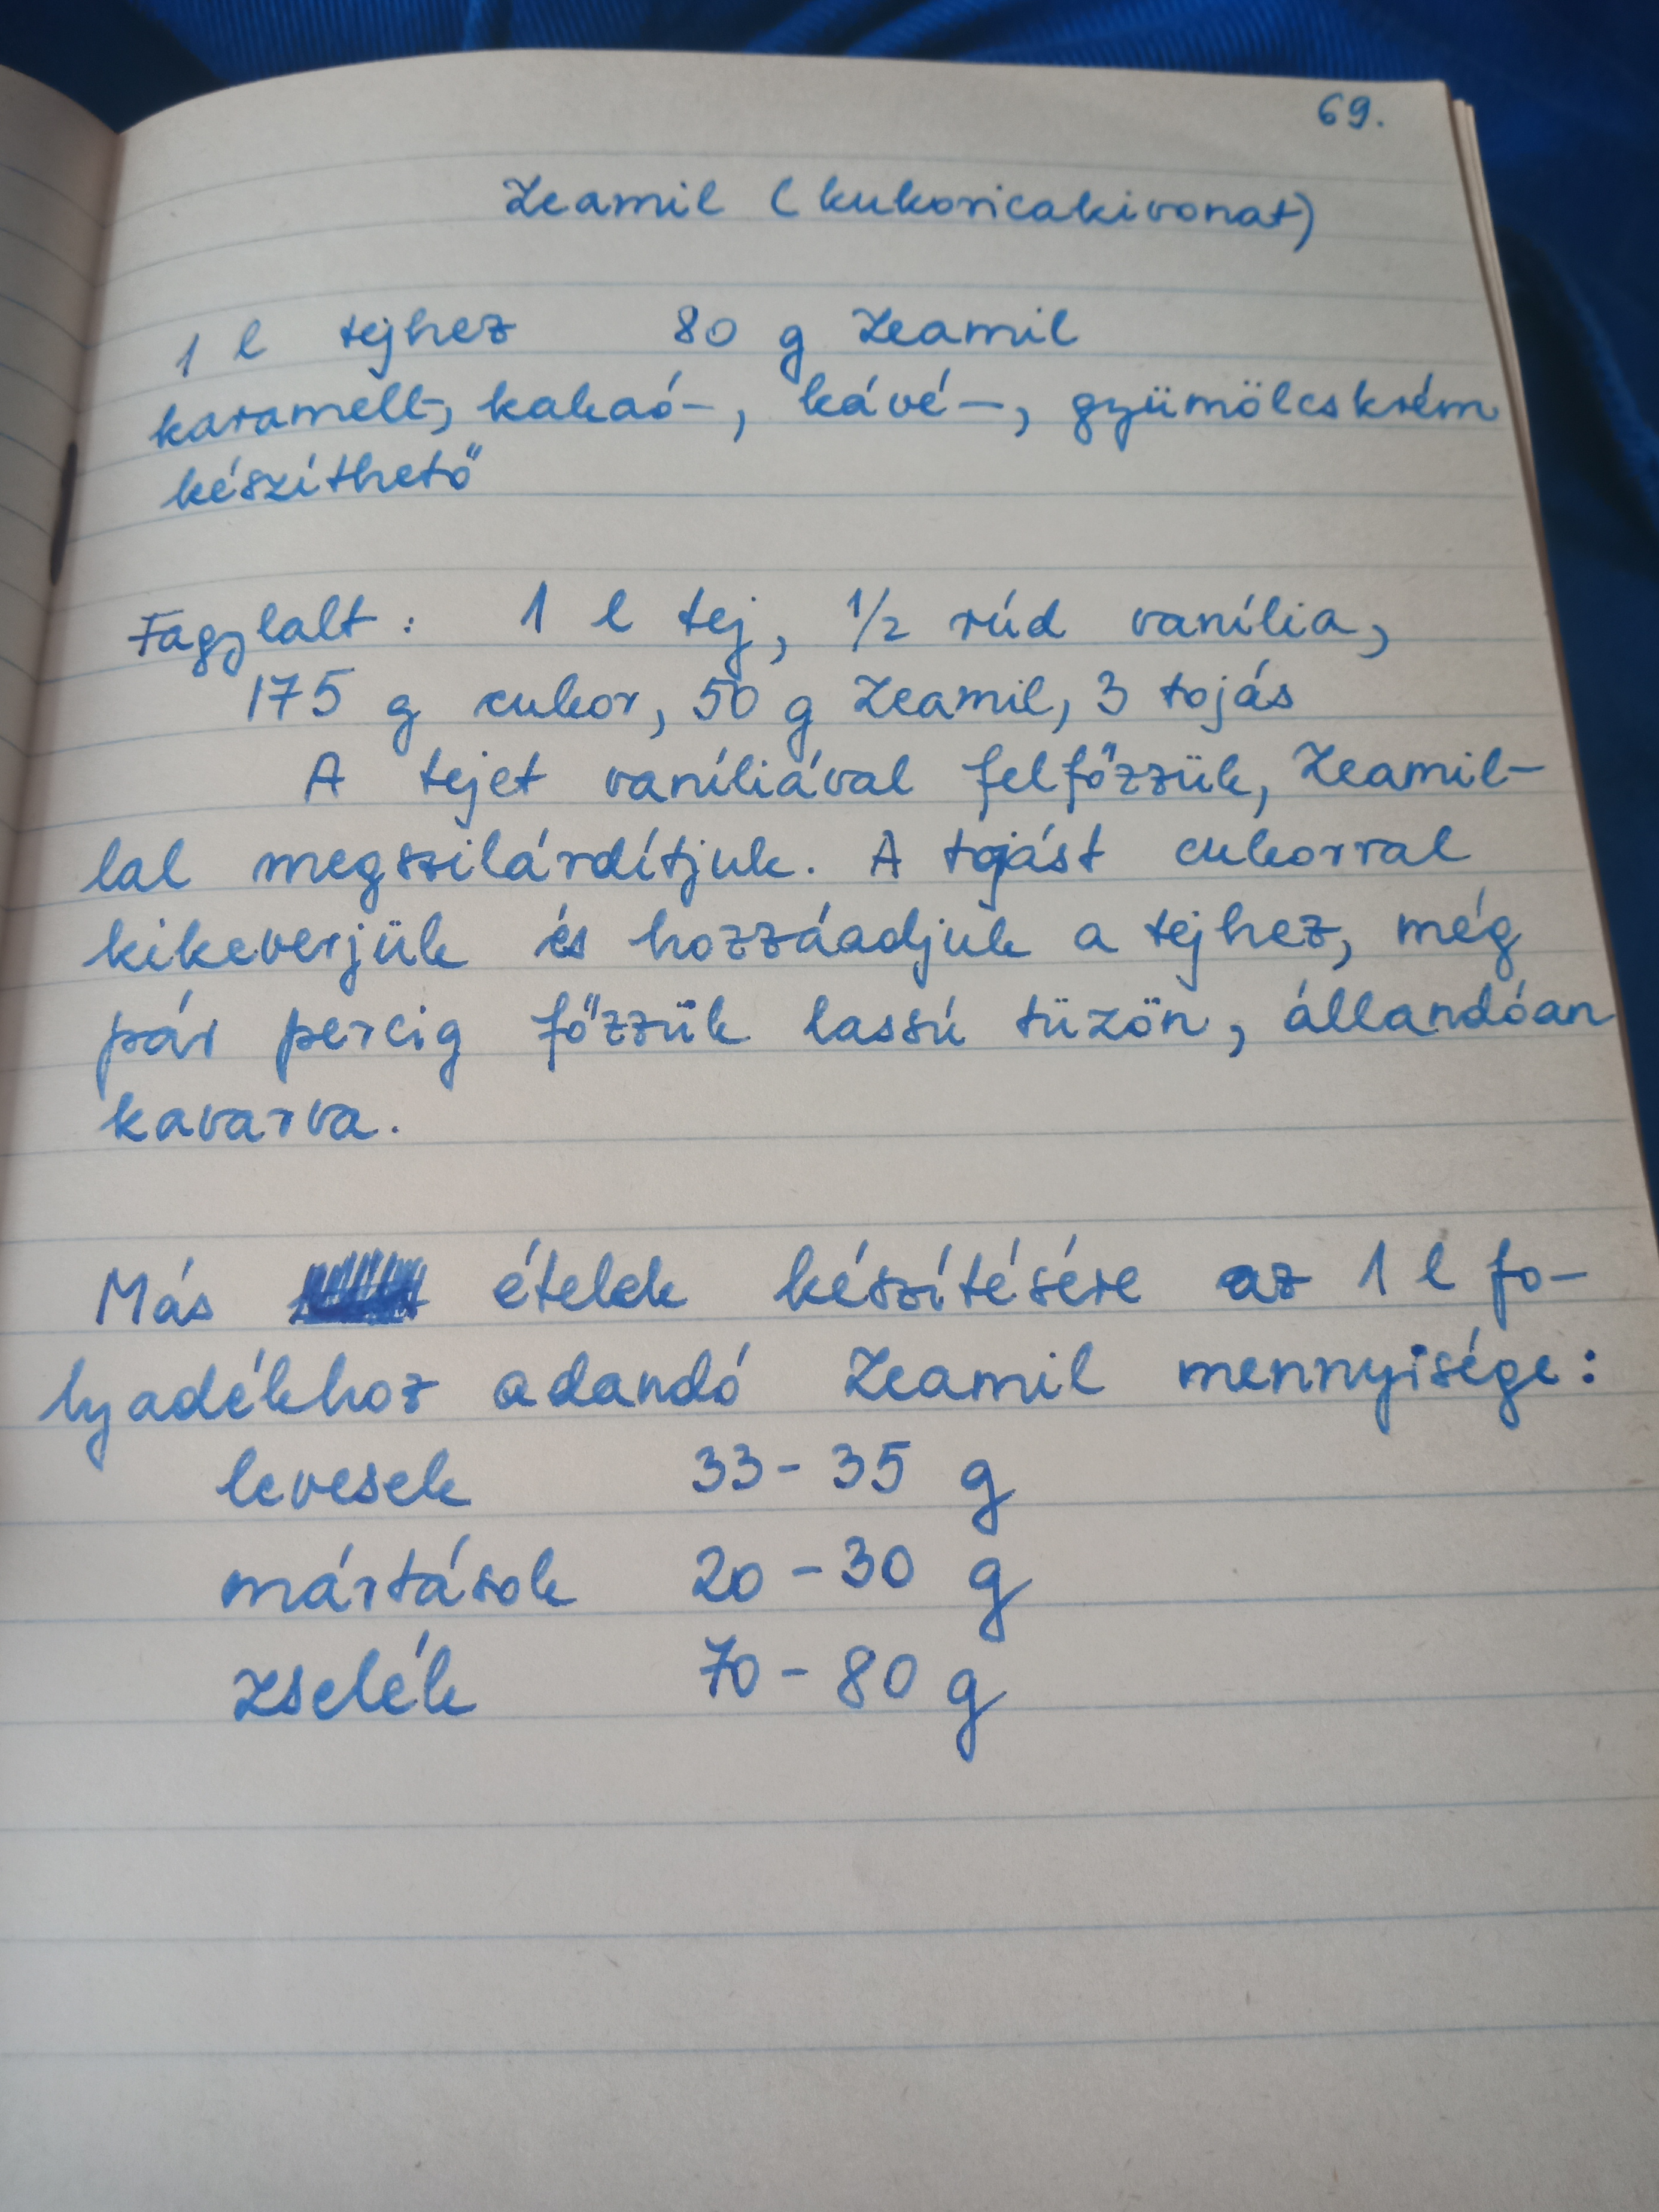 69.
Zeamil (kukoricakivonat)
1 l tejhez 80 g Zeamil
karamell-, kakaó-, kávé-, gyümölcskrém
készíthető
Fagylalt: 1 l tej, 1/2 rúd vanília,
175 g cukor, 50 g Zeamil, 3 tojás
A tejet vaníliával felfőzzük, Zeamil-
lal megszilárdítjuk. A tojást cukorral
kikeverjük és hozzáadjuk a tejhez, még
pár percig főzzük lassú tüzön, állandóan
kavarva.
Más ételek készítésére az 1 l fo-
lyadékhoz adandó Zeamil mennyisége:
levesek 33-35 g
mártások 20-30 g
zselék 70-80 g